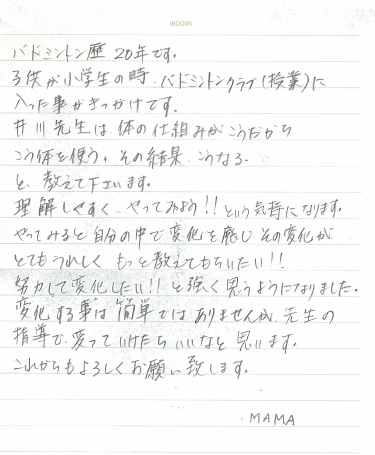 バドミントン歴 20年です。
子供が小学生の時、バドミントンクラブ(授業)に
入った事がきっかけです。
井川先生は、体の仕組みがこうだから
こう体を使う、その結果、こうなる。
と、教えて下さいます。
理解しやすく、やってみよう!!という気持になります。
やってみると自分の中で変化を感じ その変化が
とてもうれしく もっと教えてもらいたい!!
努力して変化したい!! と強く思うようになりました。
変化する事は簡単ではありませんが、先生の
指導で、変っていけたらいいなと思います。
これからもよろしくお願い致します。
MAMA